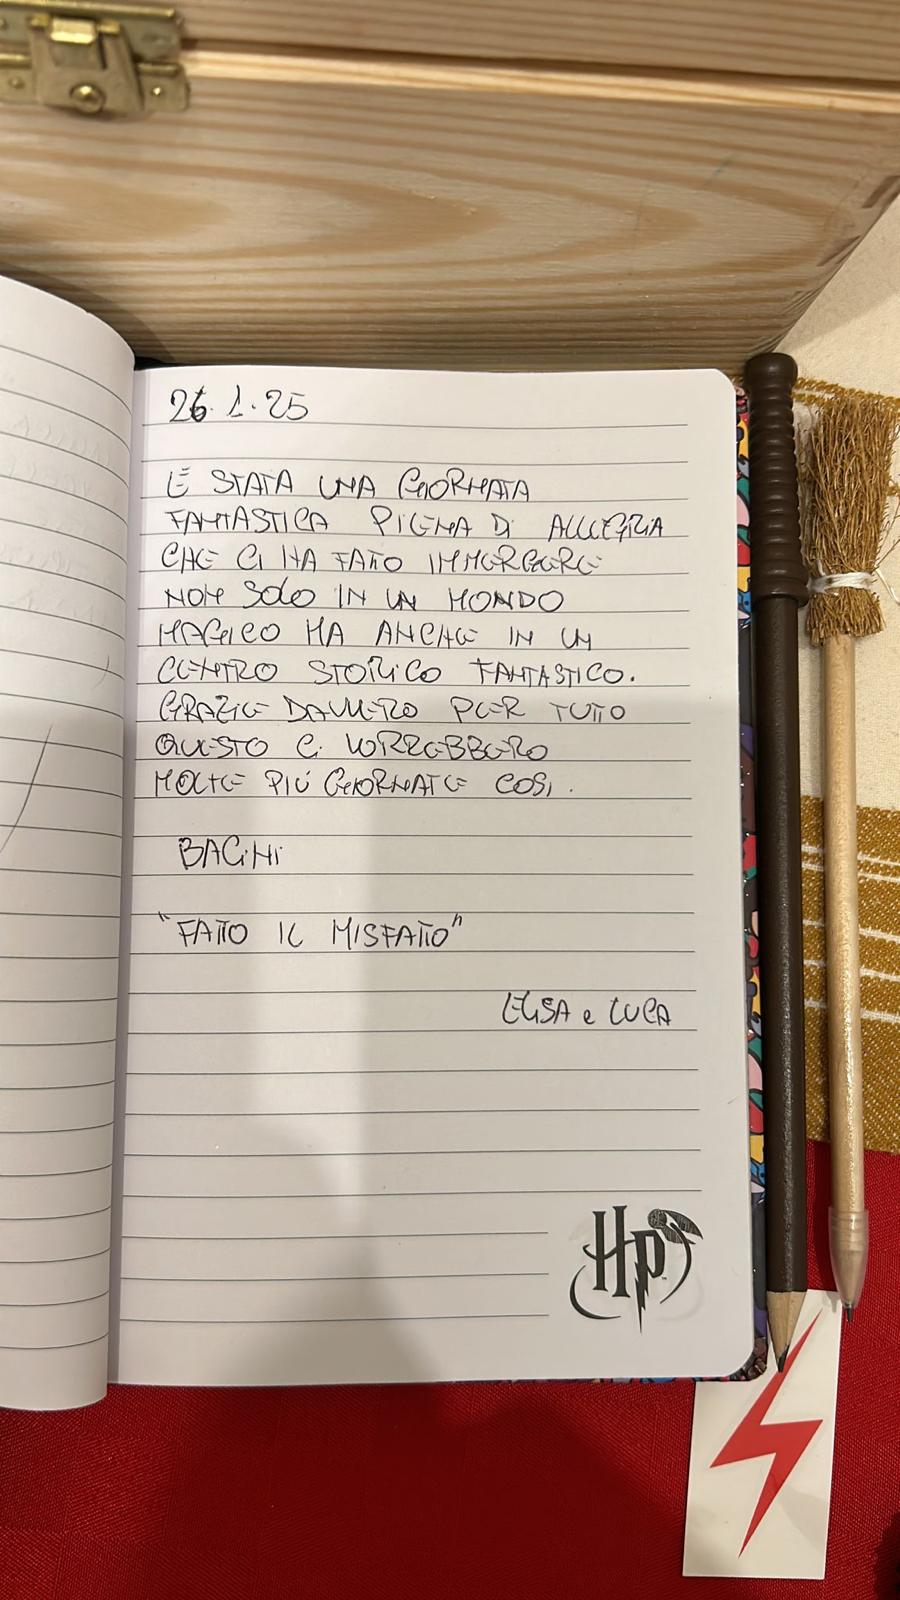 26.1.25
È STATA UNA GIORNATA
FANTASTICA PIENA DI ALLEGRIA
CHE CI HA FATTO IMMERGERE
NON SOLO IN UN MONDO
MAGICO MA ANCHE IN UN
CENTRO STORICO FANTASTICO.
GRAZIE DAVVERO PER TUTTO
QUESTO CI VORREBBERO
MOLTE PIÙ GIORNATE COSÌ.
BACINI
"FATTO IL MISFATTO"
ELISA e LUCA
HP